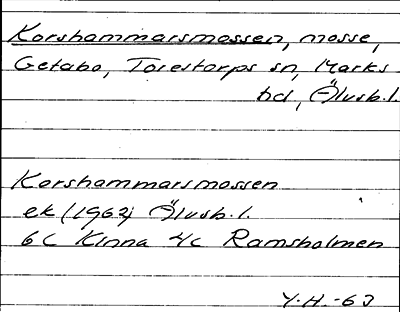 Korshammarsmossen, mosse,
Getabo, Torestorps sn, Marks
hd, Älvsb. l.
Korshammarsmossen
ek (1962) Älvsb. l.
6C Kinna 4c Ramsholmen
Y. H. -63